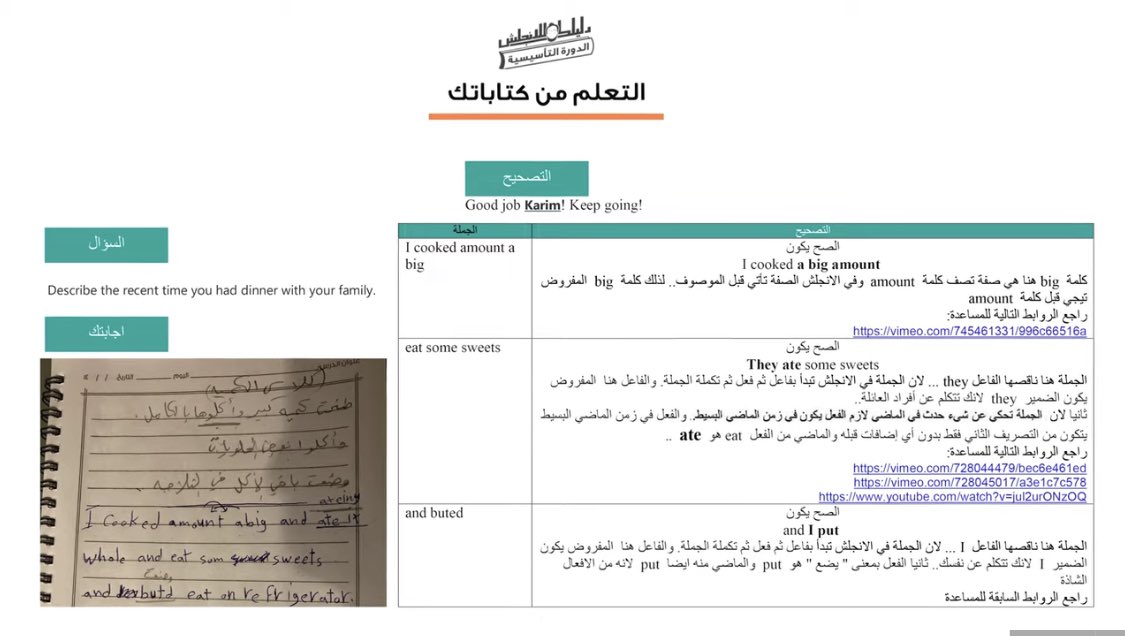 دليلك للانجلش
الدورة التأسيسية
التعلم من كتاباتك
التصحيح
Good job Karim! Keep going!
السؤال
Describe the recent time you had dinner with your family.
اجابتك
الجملة
التصحيح
I cooked amount a
big
الصح يكون
I cooked a big amount
كلمة big هنا هي صفة تصف كلمة amount وفي الانجلش الصفة تأتي قبل الموصوف.. لذلك كلمة big المفروض
تيجي قبل كلمة amount
راجع الروابط التالية للمساعدة:
https://vimeo.com/745461331/996c66516a
eat some sweets
الصح يكون
They ate some sweets
الجملة هنا ناقصها الفاعل they ... لان الجملة في الانجلش تبدأ بفاعل ثم فعل ثم تكملة الجملة. والفاعل هنا المفروض
يكون الضمير they لانك تتكلم عن أفراد العائلة..
ثانيا لان الجملة تحكي عن شيء حدث في الماضي لازم الفعل يكون في زمن الماضي البسيط.. والفعل في زمن الماضي البسيط
يتكون من التصريف الثاني فقط بدون أي إضافات قبله والماضي من الفعل eat هو ate ..
راجع الروابط التالية للمساعدة:
https://vimeo.com/728044479/bec6e461ed
https://vimeo.com/728045017/a3e1c7c578
https://www.youtube.com/watch?v=jul2urONzOQ
and buted
الصح يكون
and I put
الجملة هنا ناقصها الفاعل I ... لان الجملة في الانجلش تبدأ بفاعل ثم فعل ثم تكملة الجملة. والفاعل هنا المفروض يكون
الضمير I لانك تتكلم عن نفسك.. ثانيا الفعل بمعنى " يضع " هو put والماضي منه ايضا put لانه من الافعال
الشاذة
راجع الروابط السابقة للمساعدة
طبخت كمية كبير وأكلوها بالكامل.
وأكلوا بعض الحلويات
وضعت باقي الأكل في الثلاجه.
I Cooked amount abig and ate it
whole and eat som sweets
and butd eat on refrigerator.